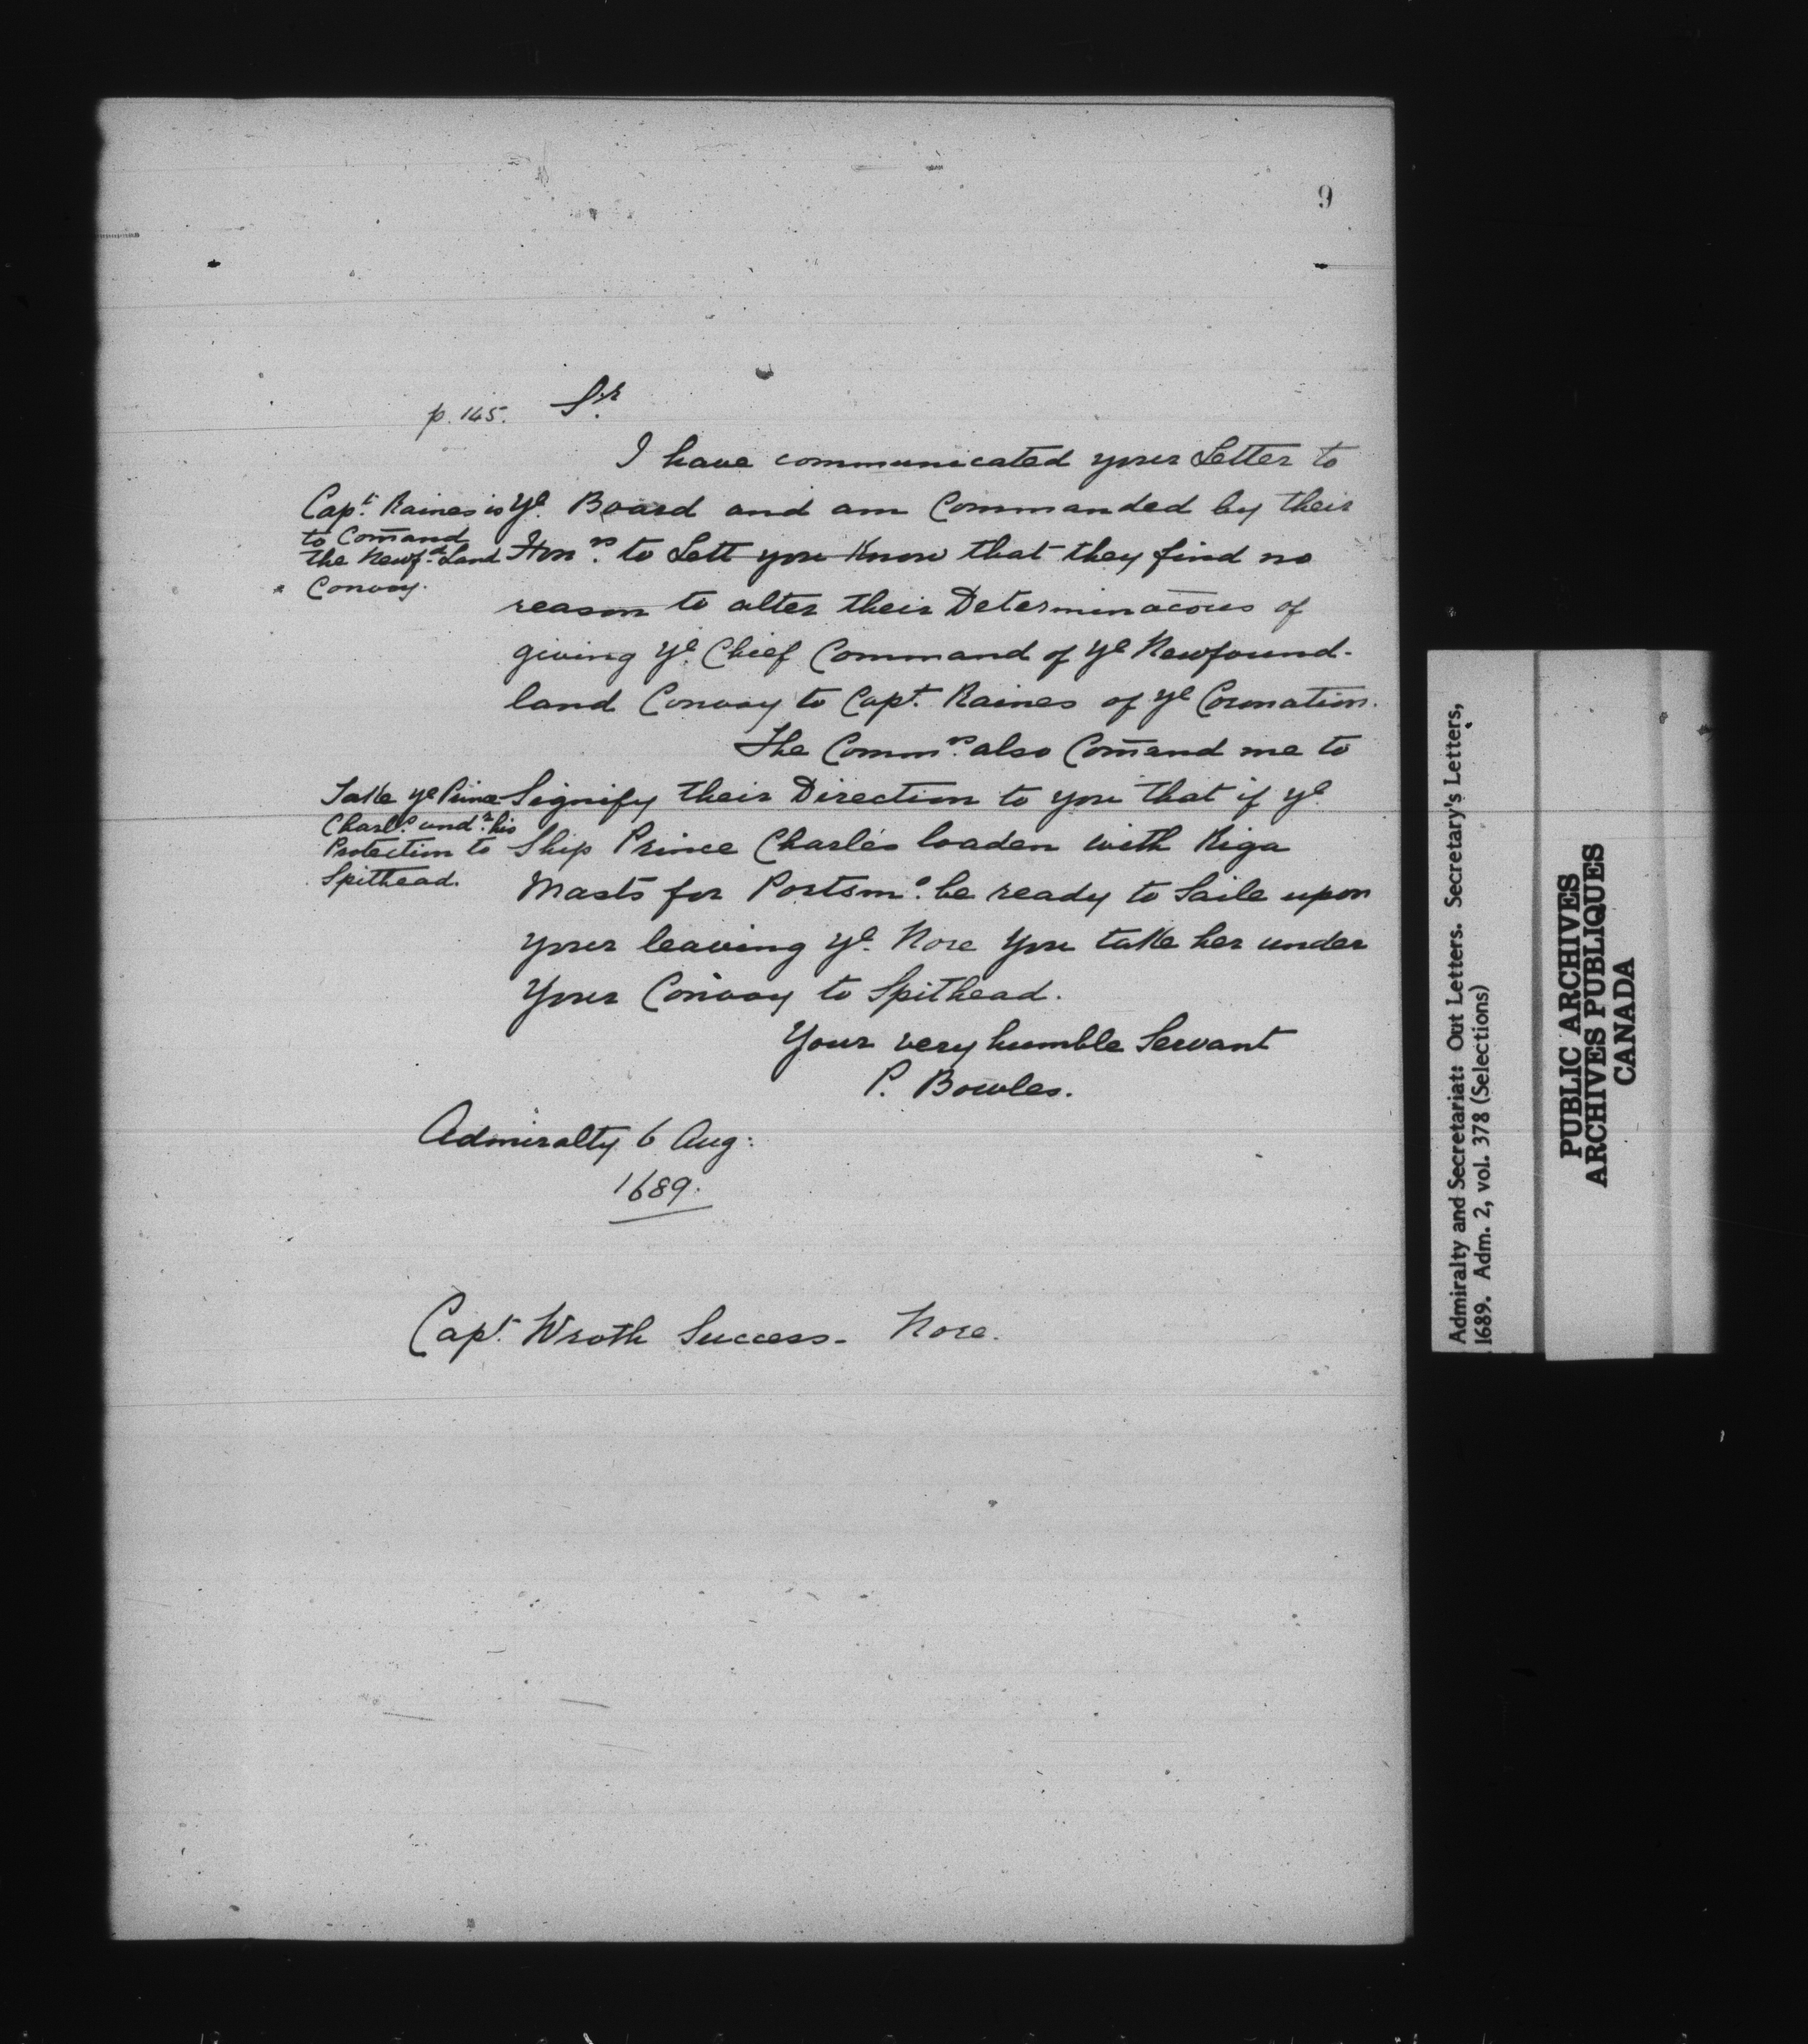 9
p. 145. Sr.
I have communicated your Letter to
Capt. Raines is
to Comand
the Newfd. Land
Convoy.
ye. Board and am Commanded by their
Honrs. to Lett you Know that they find no
reason to alter their Determinacōns of
giving ye. Chief Command of ye Newfound-
land Convoy to Capt. Raines of ye Coronation.
The Commrs. also Com̄and me to
Take ye Prince
Charls. undr. his
Protection to
Spithead.
Signify their Direction to you that if ye
Ship Prince Charles loaden with Riga
Masts for Portsmo. be ready to Saile upon
your leaving ye. Nore you take her under
Your Convoy to Spithead.
Your very humble Servant
P. Bowles.
Admiralty 6 Aug:
1689.
Capt. Wroth Success - Nore.
Admiralty and Secretariat: Out Letters. Secretary's Letters,
1689. Adm. 2, vol. 378 (Selections)
PUBLIC ARCHIVES
ARCHIVES PUBLIQUES
CANADA